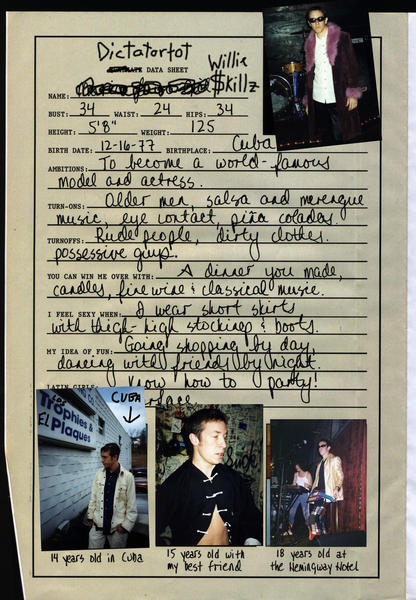 Dictatortot
DATA SHEET
Willie
$killz
NAME:
BUST: 34 WAIST: 24 HIPS: 34
HEIGHT: 5'8" WEIGHT: 125
BIRTH DATE: 12-16-77 BIRTHPLACE: Cuba
AMBITIONS: To become a world-famous
model and actress.
TURN-ONS: Older men, salsa and merengue
music, eye contact, piña coladas.
TURNOFFS: Rude people, dirty clothes.
possessive guys.
YOU CAN WIN ME OVER WITH: A dinner you made,
candles, fine wine & classical music.
I FEEL SEXY WHEN: I wear short skirts
with thigh-high stockings & boots.
MY IDEA OF FUN: Going shopping by day,
dancing with friends by night.
LATIN GIRLS: Know how to party!
Trophies &
El Plaques
CUBA
14 years old in Cuba
15 years old with
my best friend
18 years old at
the Hemingway Hotel